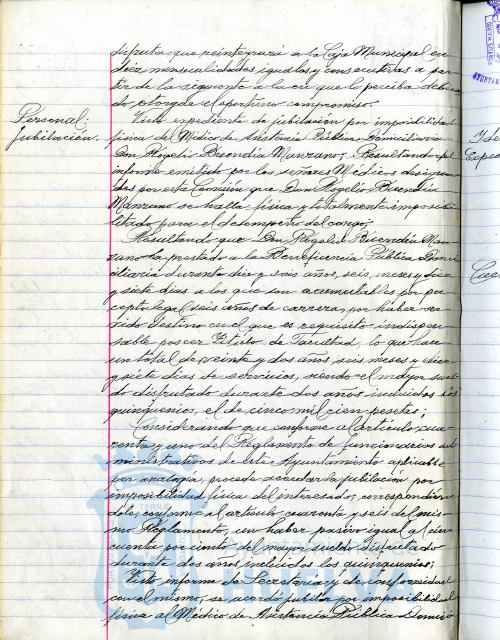 disfruta que reintegrará a la Caja Municipal en
diez mensualidades iguales y consecutivas a par-
tir de la siguiente a la en que lo perciba debien-
do otorgar el oportuno compromiso.
Personal:
Jubilación.
Visto expediente de jubilación por imposibilidad
física del Médico de Asistencia Pública Domiciliaria
Don Rogelio Buendía Manzano; Resultando del
informe emitido por los señores Médicos designa-
dos por esta Comisión que Don Rogelio Buendía
Manzano se halla física y totalmente imposibi-
litado para el desempeño del cargo;
Resultando que Don Rogelio Buendía Man-
zano ha prestado a la Beneficencia Pública Domi-
ciliaria durante diez y seis años, seis meses y diez
y siete días a los que son acumulables por pre-
cepto legal seis años de carrera, por haber ser-
vido destino en el que es requisito indispen-
sable poseer Título de Facultad, lo que hace
un total de veinte y dos años, seis meses y diez
y siete días de servicios, siendo el mayor suel-
do disfrutado durante dos años incluidos los
quinquenios, el de cinco mil cien pesetas;
Considerando que conforme al artículo cua-
renta y uno del Reglamento de funcionarios ad-
ministrativos de este Ayuntamiento aplicable
por analogía, procede acordar la jubilación por
imposibilidad física del interesado, correspondién-
dole, conforme al artículo cuarenta y seis del mis-
mo Reglamento, un haber pasivo igual al cin-
cuenta por ciento del mayor sueldo disfrutado
durante dos años incluidos los quinquenios;
Visto informe de Secretaría y de conformidad
con el mismo, se acordó jubilar por imposibilidad
física al Médico de Asistencia Pública Domici-